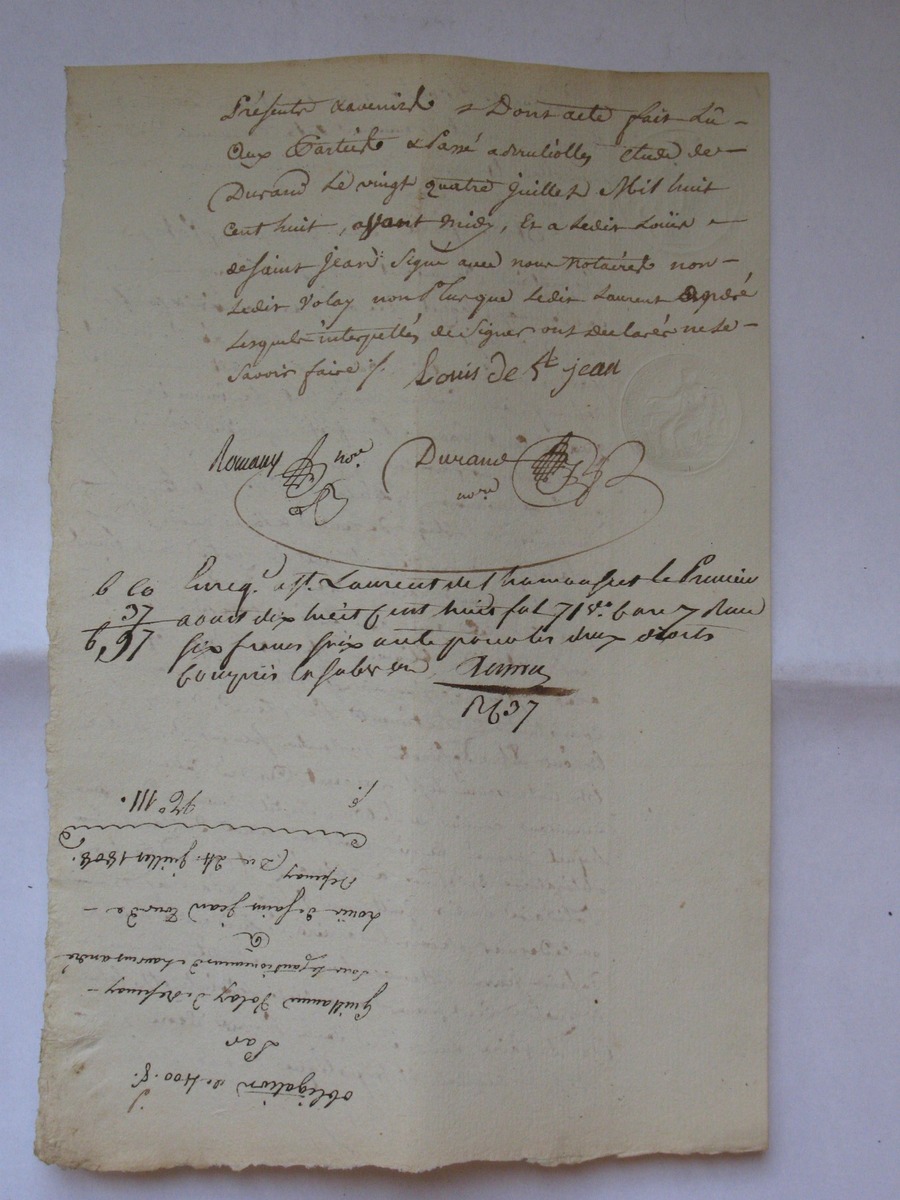 Présents & avenirs Dont acte fait Lû
Aux Parties & Passé étude de
Durand Le vingt quatre juillet Mil huit
cent huit, avant midi, Et a Ledit Louis
de saint jean signé avec nous Notaires non
Ledit Volay non plus que Ledit Laurent andré
Lesquels interpellés de signer ont declarés ne le
savoir faire ./.
Louis de St jean
nore
Durand
nore
6 60
37
6,97
Enreg. à St. Laurent le Premier
aout dix huit Cent huit fol 71 Reçu
six francs soixante pour les deux droits
Compris la subv on
Rt 37
obligation de 400 f.
Par
Guillaume Volay
Sous le Cautionnement de Laurent andré
A
Louis de saint jean
Du 24. juillet 1808.
No 111.